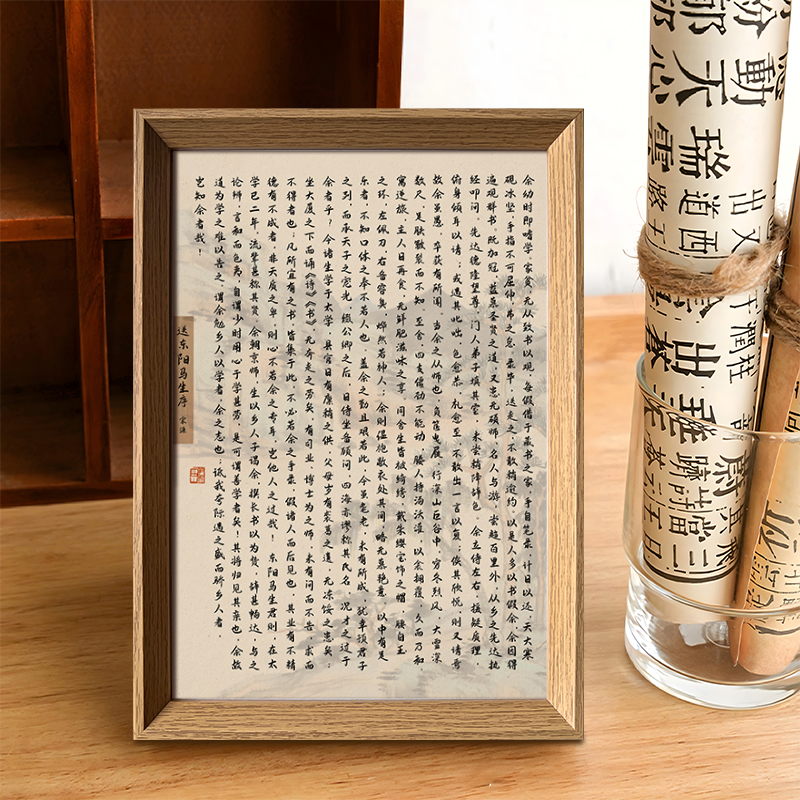 余幼时即嗜学。家贫,无从致书以观,每假借于藏书之家,手自笔录,计日以还。天大寒,
砚冰坚,手指不可屈伸,弗之怠。录毕,走送之,不敢稍逾约。以是人多以书假余,余因得
遍观群书。既加冠,益慕圣贤之道。又患无硕师、名人与游,尝趋百里外,从乡之先达执
经叩问。先达德隆望尊,门人弟子填其室,未尝稍降辞色。余立侍左右,援疑质理,
俯身倾耳以请;或遇其叱咄,色愈恭,礼愈至,不敢出一言以复;俟其欣悦,则又请焉。
故余虽愚,卒获有所闻。当余之从师也,负箧曳屣,行深山巨谷中,穷冬烈风,大雪深
数尺,足肤皲裂而不知。至舍,四支僵劲不能动,媵人持汤沃灌,以衾拥覆,久而乃和。
寓逆旅,主人日再食,无鲜肥滋味之享。同舍生皆被绮绣,戴朱缨宝饰之帽,腰白玉
之环,左佩刀,右备容臭,烨然若神人;余则缊袍敝衣处其间,略无慕艳意。以中有足
乐者,不知口体之奉不若人也。盖余之勤且艰若此。今虽耄老,未有所成,犹幸预君子
之列,而承天子之宠光,缀公卿之后,日侍坐备顾问,四海亦谬称其氏名,况才之过于
余者乎?今诸生学于太学,县官日有廪稍之供,父母岁有裘葛之遗,无冻馁之患矣;
坐大厦之下而诵《诗》《书》,无奔走之劳矣;有司业、博士为之师,未有问而不告,求而
不得者也;凡所宜有之书,皆集于此,不必若余之手录,假诸人而后见也。其业有不精,
德有不成者,非天质之卑,则心不若余之专耳,岂他人之过哉!东阳马生君则,在太
学已二年,流辈甚称其贤。余朝京师,生以乡人子谒余,撰长书以为贽,辞甚畅达,与之
论辨,言和而色夷。自谓少时用心于学甚劳,是可谓善学者矣!其将归见其亲也,余故
道为学之难以告之。谓余勉乡人以学者,余之志也;诋我夸际遇之盛而骄乡人者,
岂知余者哉!
送东阳马生序 宋濂
動天心
瑞雲